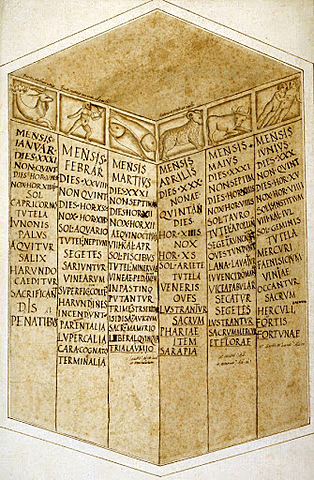 MENSIS
IANVAR
DIES·XXXI
NON·QVINT
DIES·HOR
NOX·HOR
SOL
CAPRICORNO
TVTELA
IVNONIS
PALVS
AQVITVR
SALIX
HARVNDO
CAEDITVR
SACRIFICAN
DIS
PENATIBVS
MENSIS
FEBRAR
DIES·XXVIII
NON·QVINT
DIES·HOR
NOX·HOR·XIII
SOL·AQVARIO
TVTEL·NEPTVNI
SEGETES
SARIVNTVR
VINEARVM
SVPERFIC·COLIT
HARVNDINES
INCENDVNT
PARENTALIA
LVPERCALIA
CARA·COGNATIO
TERMINALIA
MENSIS
MARTIVS
DIES·XXXI
NON·SEPTIMAN
DIES·HOR·XII
NOX·HOR·XII
AEQVINOCTIVM
VIII·KAL·APR
SOL·PISCIBVS
TVTEL·MINERVAE
VINEAE
PASTINO
PVTANTVR
TRIMESTR·SERITVR
ISIDIS·NAVIGIVM
SACR·MAMVRIO
LIBERAL·QVINQVA
TRIA·LAVATIO
MENSIS
APRILIS
DIES·XXX
NONAE
QVINTAN
DIES
HOR
NOX
HOR
SOL·ARIETE
TVTELA
VENERIS
OVES
LVSTRANTVR
SACRVM
PHARIAE
ITEM
SARAPIA
MENSIS
MAIVS
DIES·XXXI
NON·SEPTIM
DIES·HOR
NOX·HOR
SOL·TAVRO
TVTELA
SEGET·RVNCANT
OVES·TVNDVNT
LANA·LAVATVR
IVVENCI·DOMANT
VICEA·PABVLAR
SECATVR
SEGETES
LVSTRANTVR
SACRVM·MERCVR
ET·FLORAE
MENSIS
IVNIVS
DIES·XXX
NON·QVINT
DIES·HOR
NOX·HOR
SOLSTITIVM
SOL·GEMINIS
TVTELA
MERCVRI
FAENISICIVM
VINIAE
OCCANTVR
SACRVM
HERCVLI
FORTIS
FORTVNAE